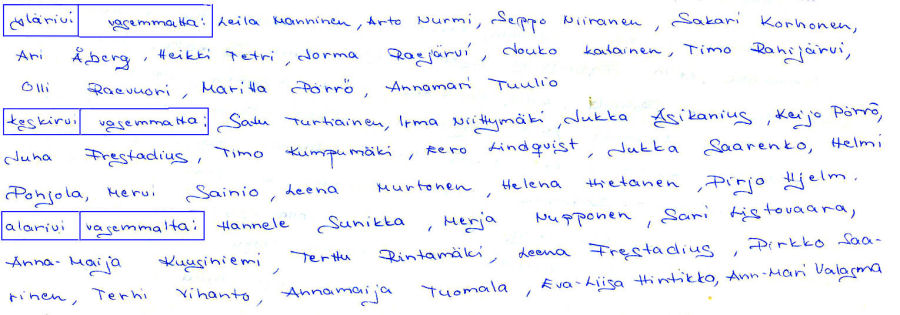 ylärivi vasemmalta: Leila Manninen, Arto Nurmi, Seppo Niiranen, Sakari Korhonen,
Ari Åberg, Heikki Tetri, Jorma Raejärvi, Jouko Katainen, Timo Rahijärvi,
Olli Raevuori, Maritta Pörrö, Annamari Tuulio
keskirvi vasemmalta: Satu Turtiainen, Irma Niittymäki, Jukka Asikanius, Keijo Pörrö,
Juha Frestadius, Timo Kumpumäki, Eero Lindqvist, Jukka Saarenko, Helmi
Pohjola, Mervi Sainio, Leena Murtonen, Helena Hietanen, Pirjo Hjelm.
alarivi vasemmalta: Hannele Sunikka, Merja Nupponen, Sari Listovaara,
Anna-Maija Kuusiniemi, Terttu Rintamäki, Leena Frestadius, Pirkko Saa-
rinen, Terhi Vihanto, Annamaija Tuomala, Eva-Liisa Hintikko, Ann-Mari Valasma